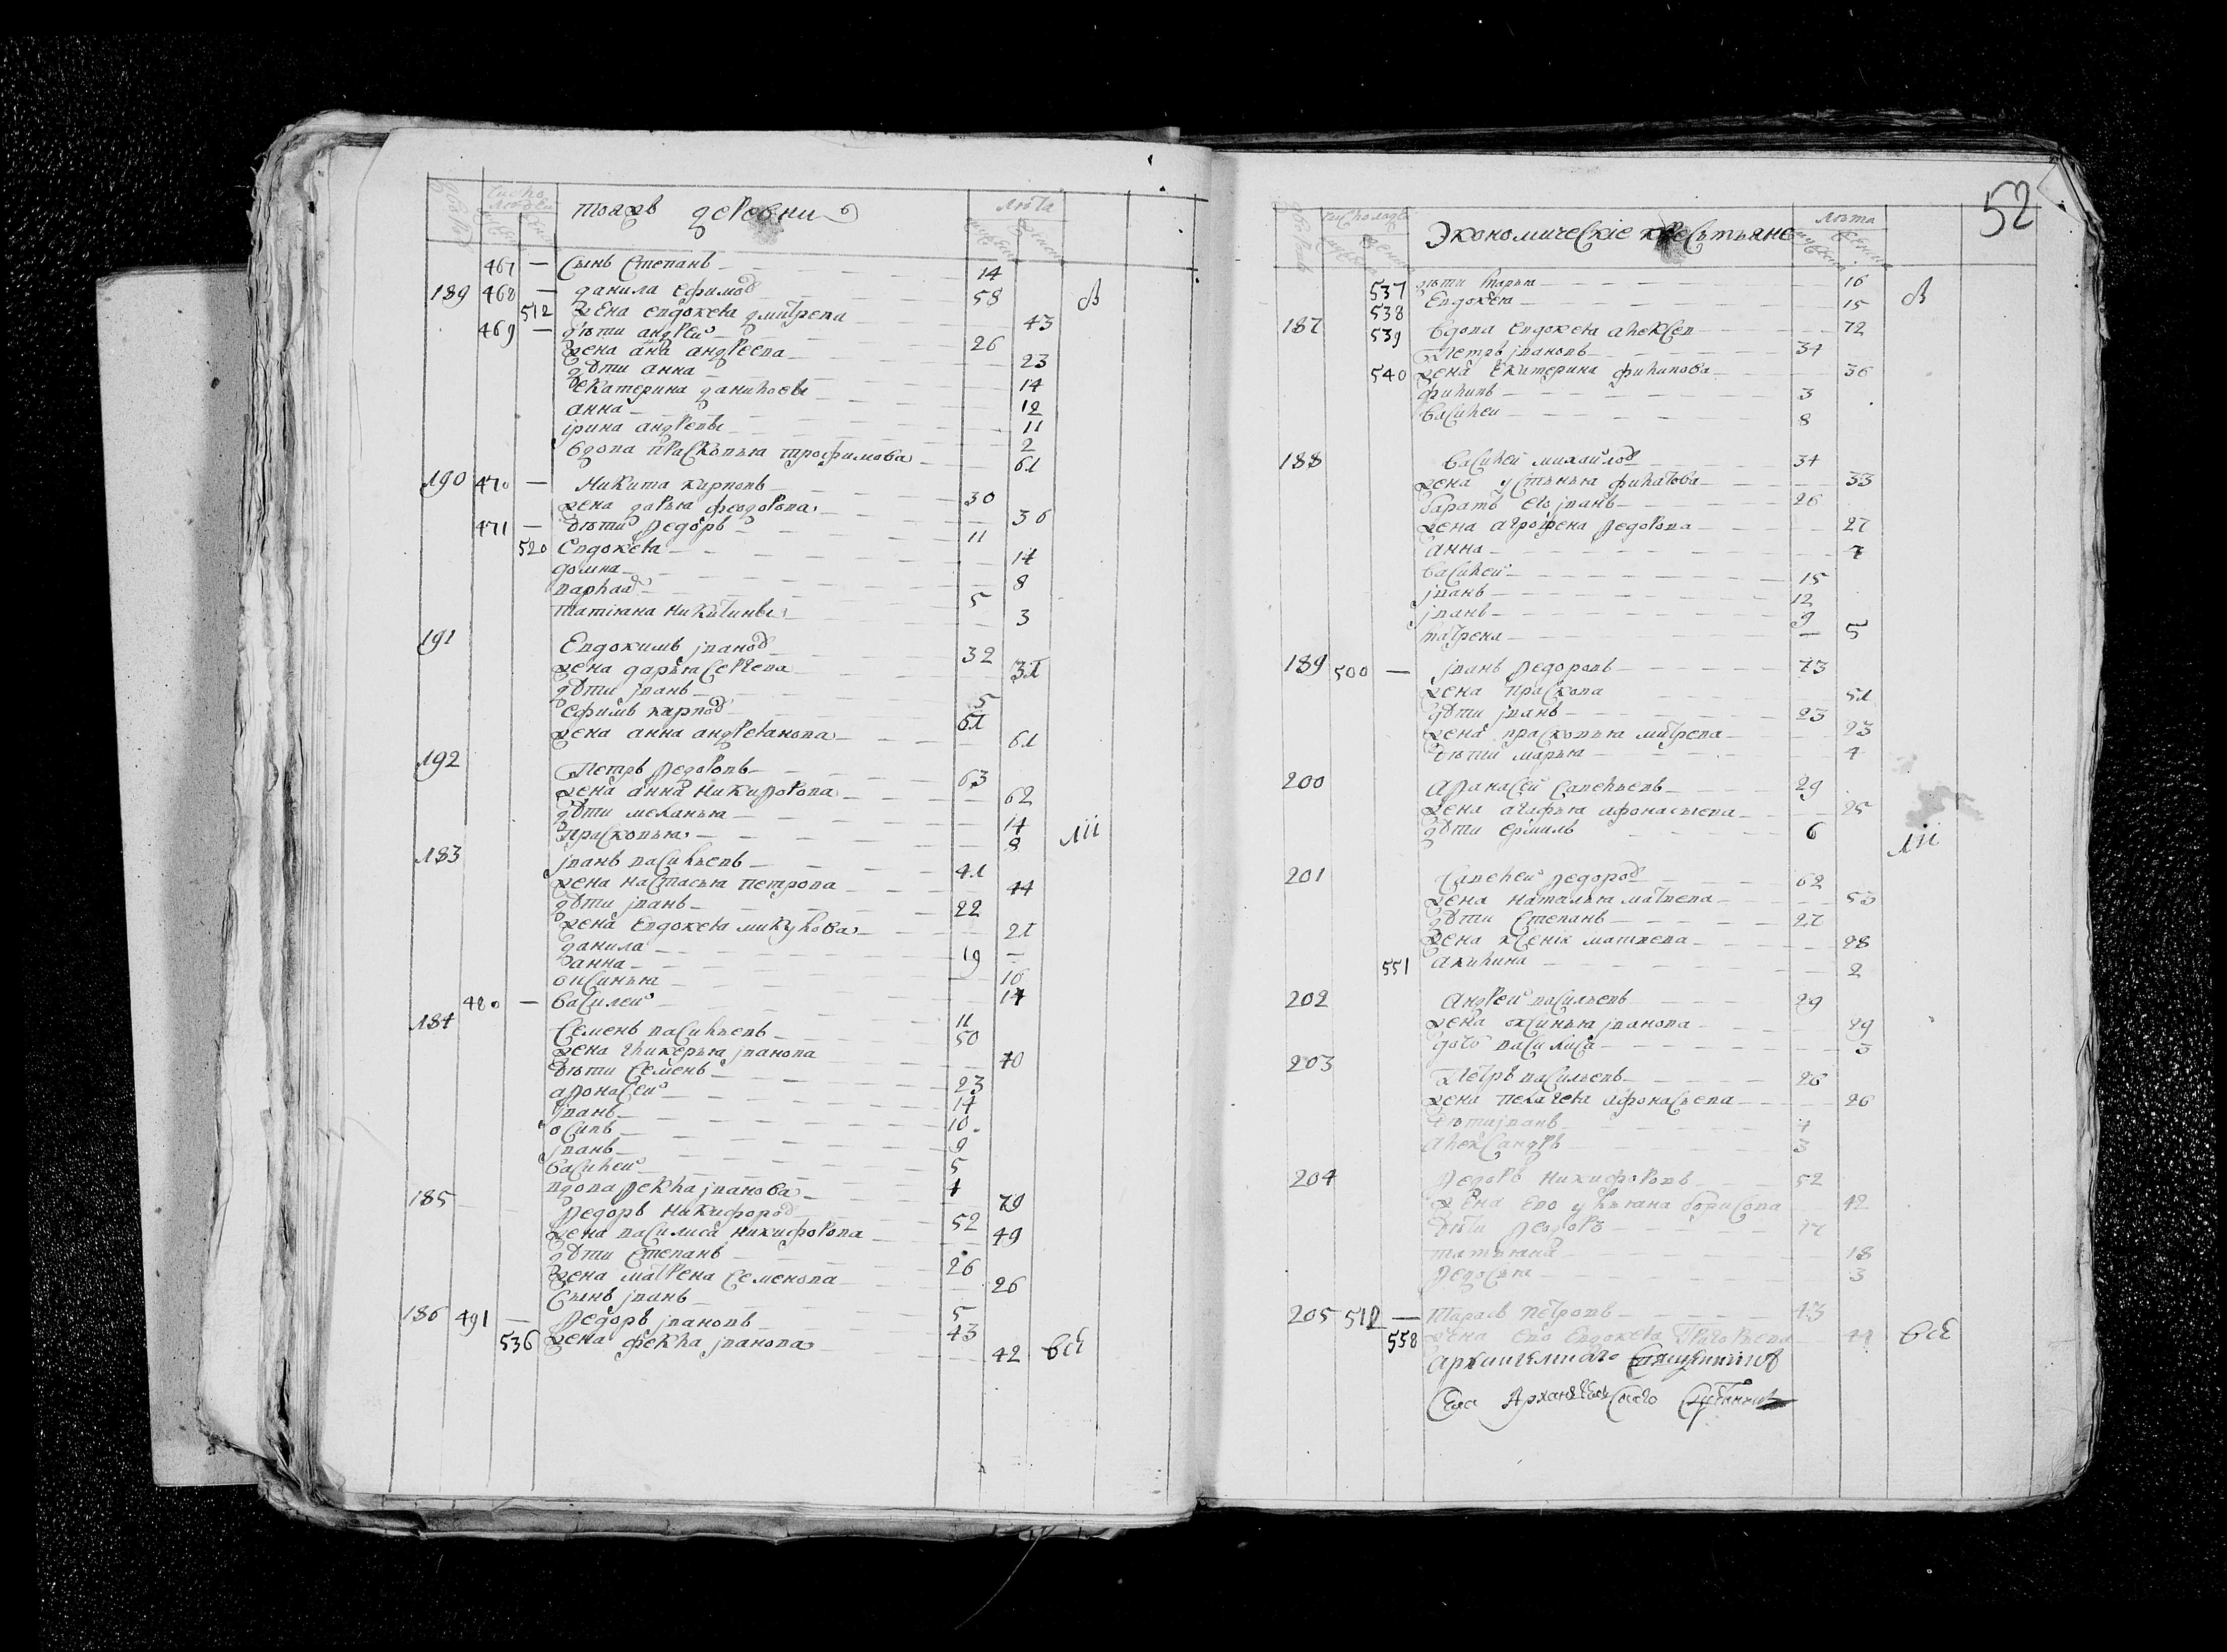 тоях деревни
467 — Сынъ Степанъ 14
189 468 — данила ефимов 58
512 жена евдокея дмитрева 43
469 — дѣти андрей 26
жена ана андреева 23
дѣти анна 14
екатерина данилоевы 12
анна 11
ірина андревы 2
вдова прасковья трофимова 61
190 470 — Никита карповъ 30
жена дарья феодорова 36
471 — дѣти федоръ 11
520 Евдокея 14
домна 8
варлаа 5
татіяна никитины 3
191 Евдокимъ јванов 32
жена дарья сергева 31
дѣти јванъ 5
ефимъ карпов 61
жена анна андреанова 61
192 Петръ федоровъ 63
жена анна никифорова 62
дѣти меланья 14
прасковья 8
183 јванъ васильевъ 41
жена настасья петрова 44
дѣти јванъ 22
жена евдокея микулова 21
данила 19
анна 16
оксинья 14
480 — василей 11
184 Семенъ васильевъ 50
жена гликерья јванова 40
дѣти Семенъ 23
афонасей 14
јванъ 10
осипъ 9
јванъ 5
василей 4
вдова фекла јванова 79
185 федоръ никифоров 52
жена василиса никифорова 49
дѣти Степанъ 26
жена матрена семенова 26
Сынъ јванъ 5
186 491 — федоръ јвановъ 43
536 жена фекла јванова 42
Экономическіе крестьяне
52
537 дѣти марья 16
538 Евдокея 15
187 539 вдова евдокея алексев 72
Петръ јвановъ 34
540 жена екатерина филипова 36
филипъ 3
василеи 8
188 василей михайлов 34
жена устинья филатова 33
братъ его јванъ 26
жена агрофена федорова 27
анна 7
василей 15
јванъ 12
јванъ 9
матрена 5
189 500 — јванъ федоровъ 73
жена праскова 51
дѣти јванъ 23
жена прасковья митрева 23
дѣти марья 4
200 афанасей савельевъ 29
жена агафья афонасьева 25
дѣти ермилъ 6
201 Савелей федоров 62
жена наталья матвева 53
дѣти Степанъ 27
жена ксеніе матвева 28
551 акилина 2
202 Андрей васильевъ 29
жена оксинья јванова 29
дочь василиса 3
203 Петръ васильевъ 26
жена пелагея афонасьева 26
дѣти јванъ 4
александръ 3
204 федоръ никифоровъ 52
жена ево ульяна борисова 42
дѣти федоръ 17
татьяна 18
федосья 3
205 512 — тарасъ петровъ 43
558 жена ево евдокея
Села Архангельскаго